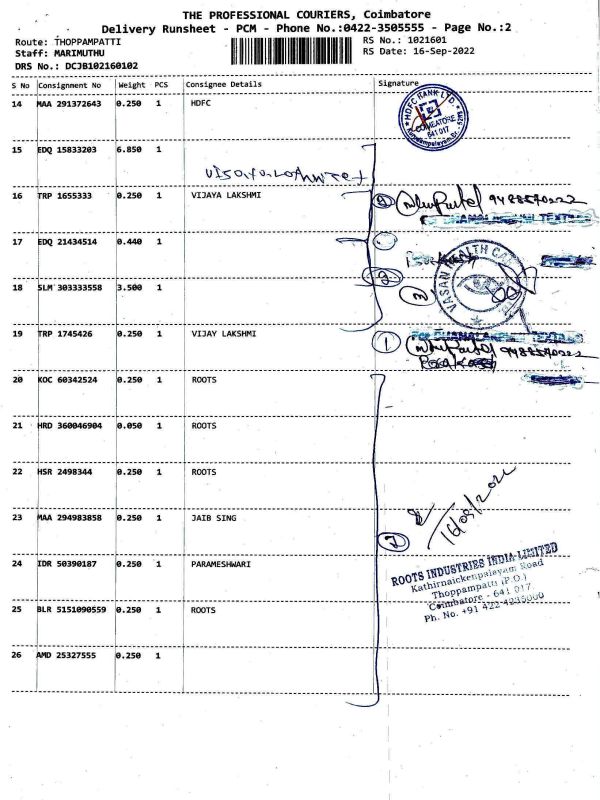 THE PROFESSIONAL COURIERS, Coimbatore
Delivery Runsheet - PCM - Phone No.:0422-3505555 - Page No.:2
Route: THOPPAMPATTI
RS No.: 1021601
Staff: MARIMUTHU
RS Date: 16-Sep-2022
DRS No.: DCJB102160102
S No Consignment No Weight PCS Consignee Details Signature
14 MAA 291372643 0.250 1 HDFC
HDFC BANK LTD.
COIMBATORE
641 017
15 EDQ 15833203 6.850 1
16 TRP 1655333 0.250 1 VIJAYA LAKSHMI
2
17 EDQ 21434514 0.440 1
VASAN HEALTH
18 SLM 303333558 3.500 1
2
19 TRP 1745426 0.250 1 VIJAY LAKSHMI
1
20 KOC 60342524 0.250 1 ROOTS
21 HRD 360046904 0.050 1 ROOTS
22 HSR 2498344 0.250 1 ROOTS
23 MAA 294983858 0.250 1 JAIB SING
16/09/2022
7
24 IDR 50390187 0.250 1 PARAMESHWARI
ROOTS INDUSTRIES INDIA LIMITED
Kathirnaickenpalayam Road
Thoppampatti (P.O.)
Coimbatore - 641 017.
Ph. No. +91 422-4235000
25 BLR 5151090559 0.250 1 ROOTS
26 AMD 25327555 0.250 1